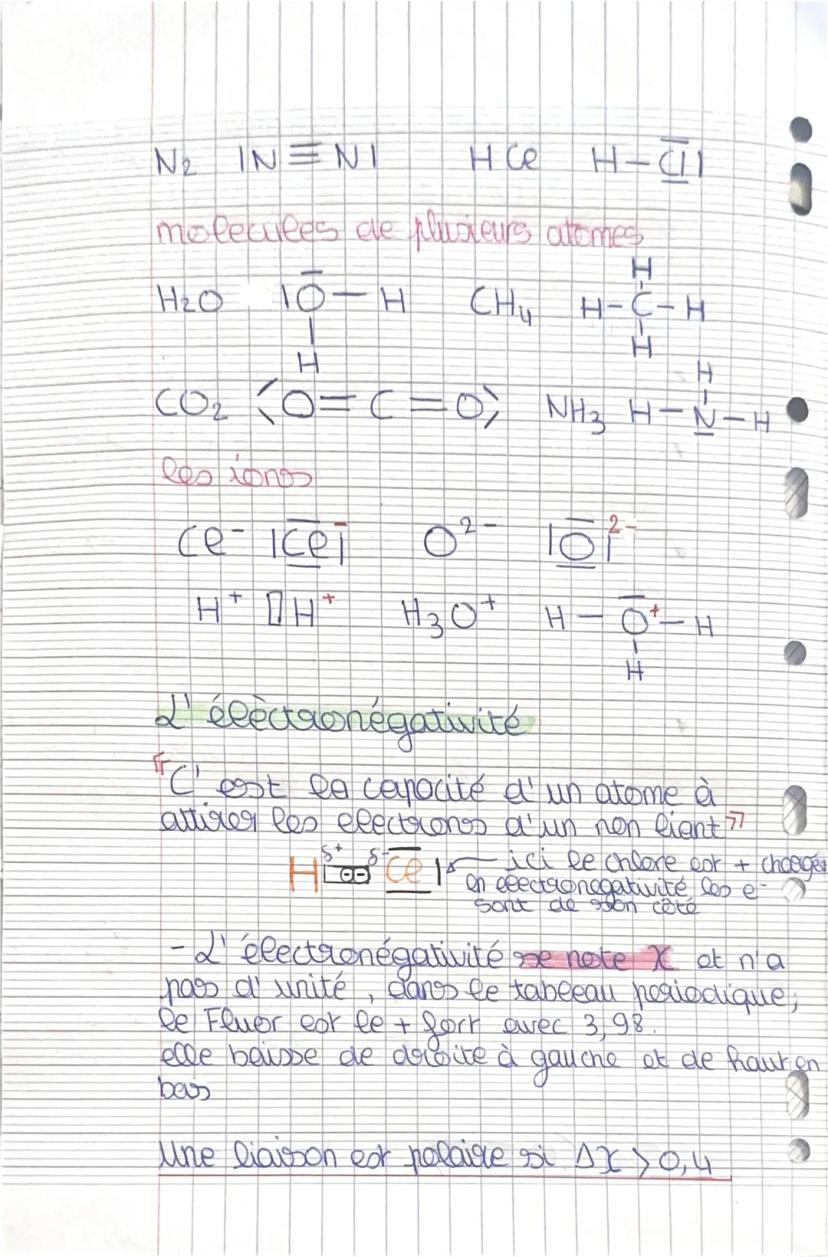 N2 |N≡N| HCl H-Cl|
molecules de plusieurs atomes
H
H2O |O-H CH4 H-C-H
H H
H
CO2 ⟨O=C=O⟩ NH3 H-N-H
les ions
Cl⁻ |Cl|⁻ O²⁻ |O|²⁻
H⁺ ▯H⁺ H3O⁺ H-O⁺-H
H
L'élèctronégativité
"C'est la capacité d'un atome à
attirer les electrons d'un non liant"
H δ+ δ- Cl| ici le chlore est + chargée
en electronegativité les e-
sont de son côté
- L'électronégativité se note X et n'a
pas d'unité, dans le tableau periodique,
le Fluor est le + fort avec 3,98.
elle baisse de droite à gauche et de haut en
bas
Une liaison est polaire si ΔX > 0,4